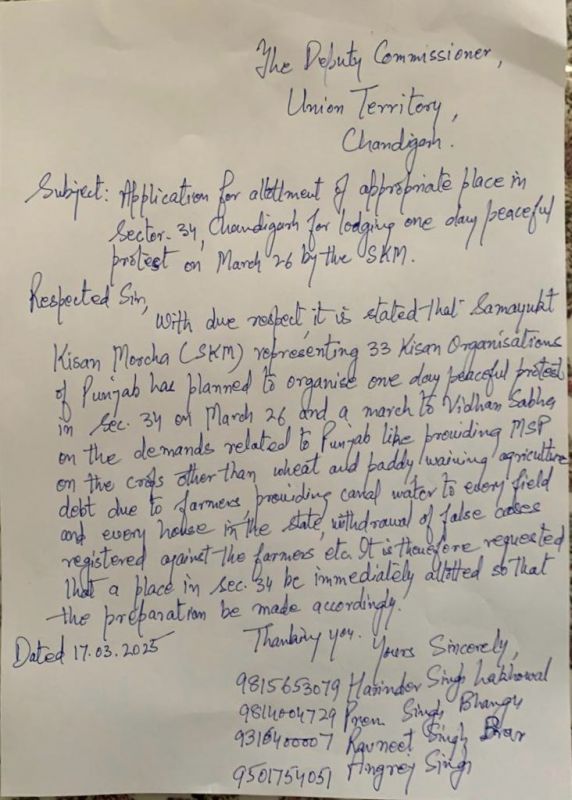 The Deputy Commissioner,
Union Territory,
Chandigarh.
Subject: Application for allotment of appropriate place in
Sector-34, Chandigarh for lodging one day peaceful
protest on March 26 by the SKM.
Respected Sir,
With due respect, it is stated that Samayukt
Kisan Morcha (SKM) representing 33 Kisan Organisations
of Punjab has planned to organise one day peaceful protest
in Sec. 34 on March 26 and a march to Vidhan Sabha
on the demands related to Punjab like providing MSP
on the crops other than wheat and paddy, waiving agriculture
debt due to farmers, providing canal water to every field
and every house in the state, withdrawal of false cases
registered against the farmers etc. It is therefore requested
that a place in Sec. 34 be immediately allotted so that
the preparation be made accordingly.
Thanking you.
Yours Sincerely,
Dated 17.03.2025
9815653079 Harinder Singh Lakhowal
9814004729 Prem Singh Bhangu
9316400007 Ravneet Singh Brar
9501754051 Angrej Singh